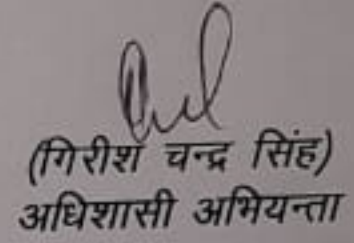 (गिरीश चन्द्र सिंह)
अधिशासी अभियन्ता